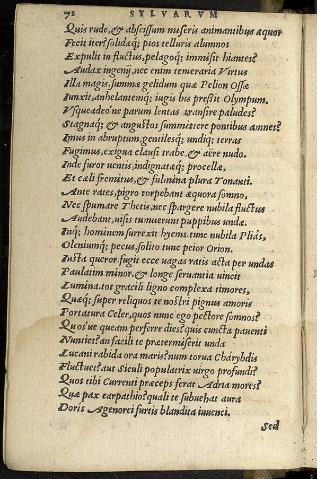 72 SYLVARVM
Quis rude, & abscissum miseris animantibus æquor
Fecit iter? solidæq; pios telluris alumnos
Expulit in fluctus, pelagoq; immisit hiantes?
Audax ingenij, nec enim temeraria Virtus
Illa magis, summæ gelidum quæ Pelion Ossæ
Iunxit, anhelantemq; iugis bis pressit Olympum.
Vsqueadeo ne parum lentas transire paludes?
Stagnaq; & angustos summittere pontibus amnes?
Imus in abruptum, gentilesq; undiq; terras
Fugimus, exigua clausi trabe, & aëre nudo.
Inde furor uentis, indignatæq; procellæ,
Et cæli fremitus, & fulmina plura Tonanti.
Ante rates, pigro torpebant æquora somno,
Nec spumare Thetis, nec spargere nubila fluctus
Audebant, uisis tumuerunt puppibus undæ.
Inq; hominem surrexit hyems. tunc nubila Pliás,
Oleniumq; pecus, solito tunc peior Orion.
Iusta queror. fugit ecce uagas ratis acta per undas
Paulatim minor, & longe seruantia uincit
Lumina. tot gracili ligno complexa timores,
Quæq; super reliquos te nostri pignus amoris
Portatura Celer, quos nunc ego pectore somnos?
Quos ue queam perferre dies? quis cuncta pauenti
Nuntiet? an facili te prætermiserit unda
Lucani rabida ora maris? num torua Charybdis
Fluctuet? aut Siculi populatrix uirgo profundi?
Quos tibi Currenti præceps ferat Adria mores?
Quæ pax carpathio? quali te subuehat aura
Doris Agenorei furtis blandita iuuenci.
Sed